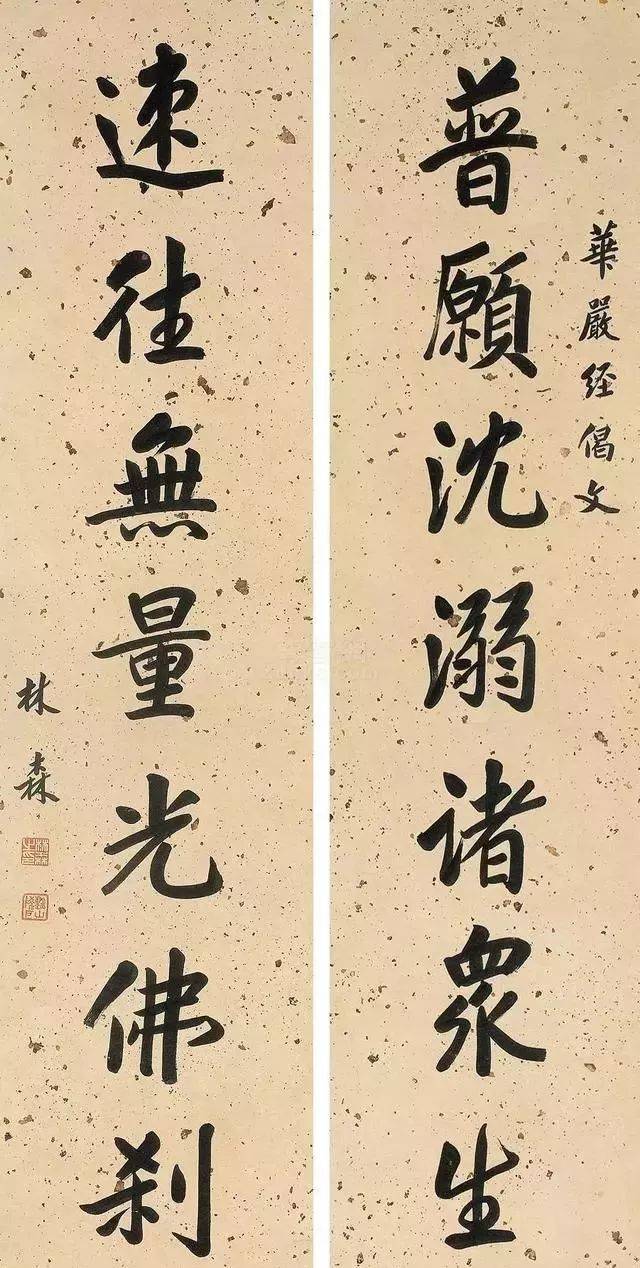 華嚴経偈文
普願沈溺諸衆生
速往無量光佛刹
林森